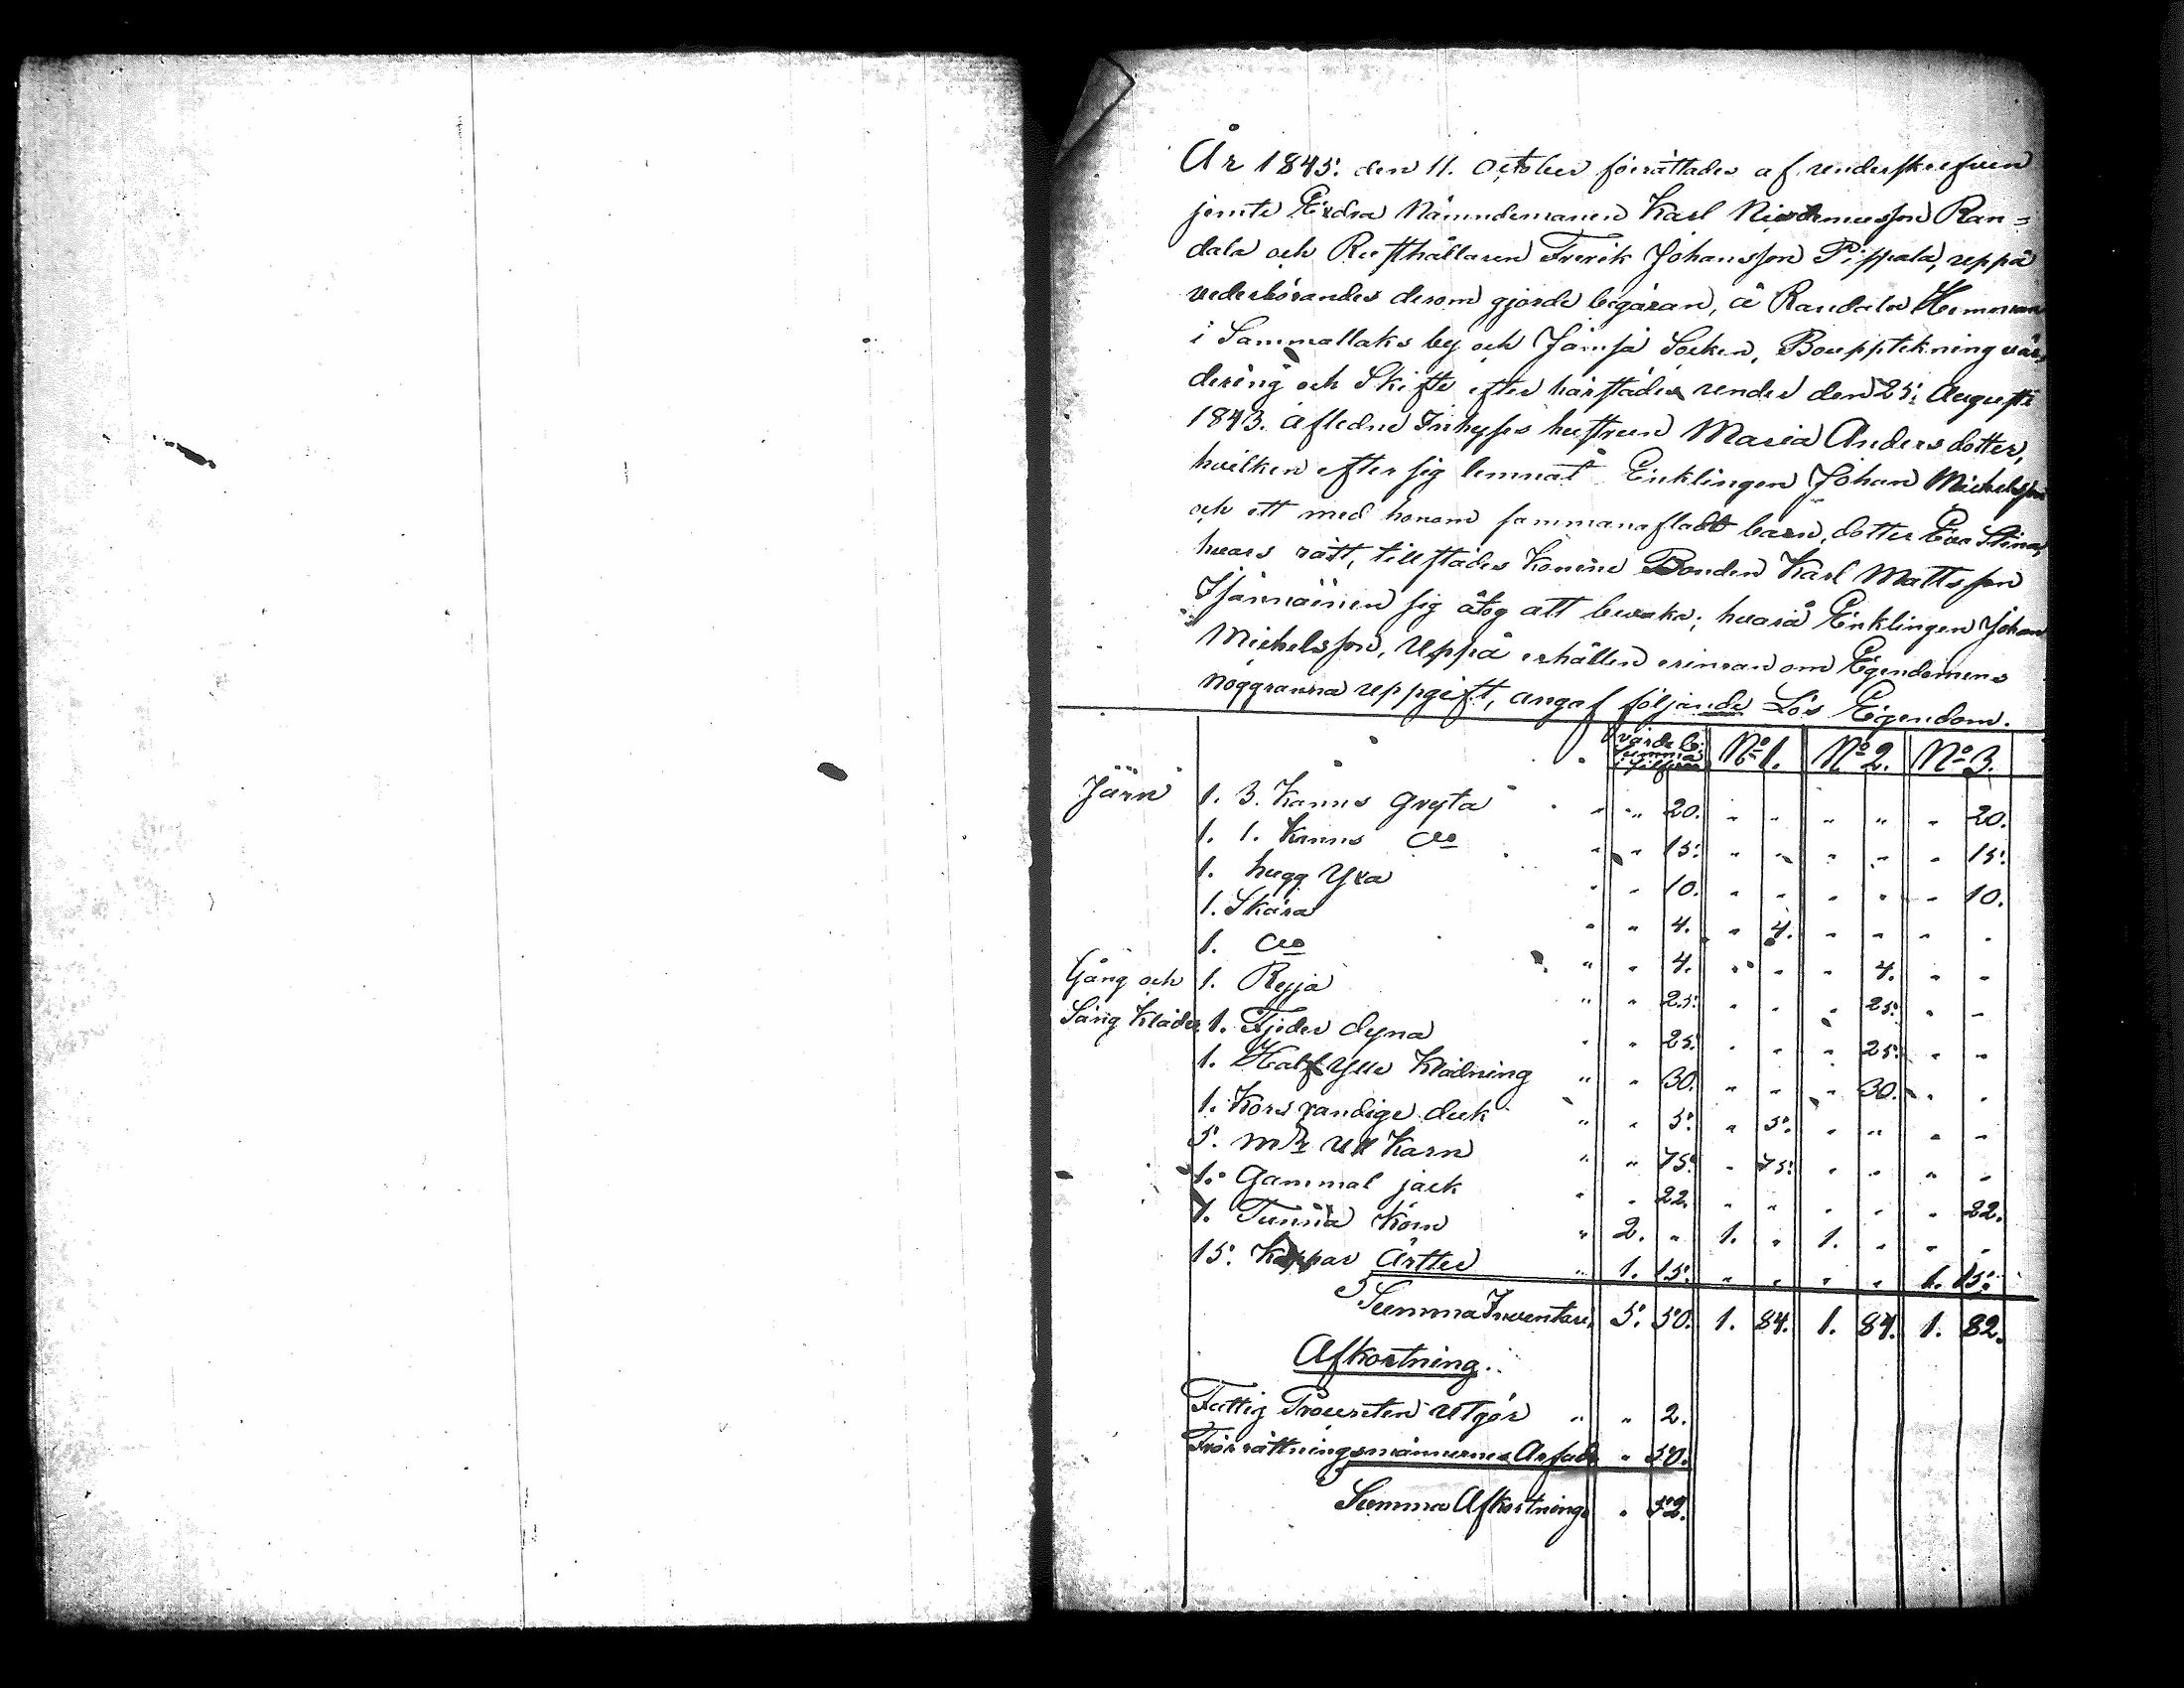 År 1845. den 11. October förrättades af undersskrefven
jemte Edra Nämndemanen Karl Nicodemusson Ran=
dala och Rusthållaren Frerik Johansson Pippala, uppå
vederbörandes derom gjorde begäran, å Randala Hemman
i Sammallaks by och Jämsä Socken, Boupptekning vär=
dering och Skifte efter härstädes under den 25. Augusti
1843. aflledne Inhyses hustrun Maria Andersdotter,
hvilken efter sig lemnat Enklingen Johan Michelsson
och ett med honom sammanafladt barn, dotter Eva Stina,
hvars rätt, tillstädes komne Bonden Karl Mattsson
sig åtog att bevaka; hvarå Enklingen Johan
Michelsson, uppå erhållen erinran om Egendomens
noggranna uppgift, angaf följande Lös Egendom.
värde be: summa silfver N:o 1. N:o 2. N:o 3.
Järn 1. 3. Kanns Gryta " " 20. " " " " " 20.
1. 1. Kanns do " " 15. " " " " " 15.
1. hugg Yxa " " 10. " " " " " 10.
1. Skära " " 4. " 4. " " " "
1. do " " 4. " " " 4. " "
Gång och 1. Ryja " " 25. " " " 25. " "
Säng Kläder 1. Fjeder dyna " " 25. " " " 25. " "
1. Half Ylle Klädning " " 30. " " " 30. " "
1. Kors randige duk " " 5. " 5. " " " "
5. mk Ull Karn " " 75. " 75. " " " "
1. Gammal jack " " 22. " " " " " 22.
1. Tunna Korn " 2. " 1. " 1. " " "
15. Kappar Ärtter " 1. 15. " " " " 1. 15.
Summa Inventari, 5. 50. 1. 84. 1. 84. 1. 82.
Afkortning.
Fattig Procenten utgör " " 2.
Förrättningsmännernes Arfode " 50.
Summa Afkortning " 52.